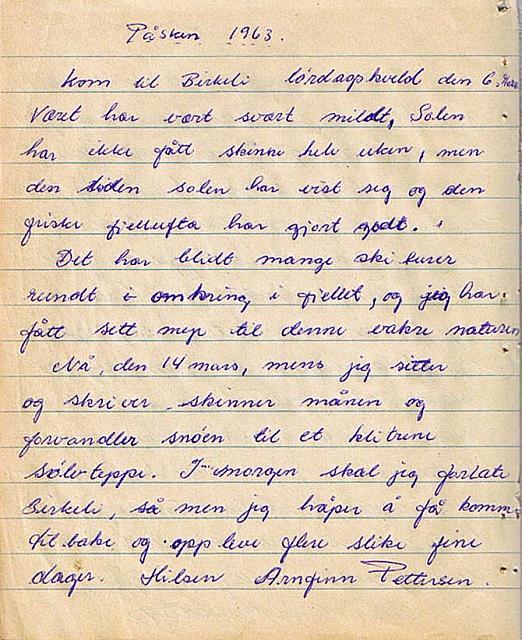 Påsken 1963.
Kom til Birkeli lördagskveld den 6. Mars
Været har vært svært mildt, Solen
har ikke fått skinne hele uken, men
den tiden solen har vist seg og den
friske fjellufta har gjort godt.
Det har blidt mange ski turer
rundt i omkring i fjellet, og jeg har
fått sett mye til denne vakre naturen
Nå, den 14 mars, mens jig sitter
og skriver skinner månen og
forvandler snöen til et klitrene
sölv teppe. I morgen skal jeg forlate
Birkeli, så men jig håper å få komme
til bake og opp leve flere slike fine
dager. Hilsen Arnfinn Pettersen.